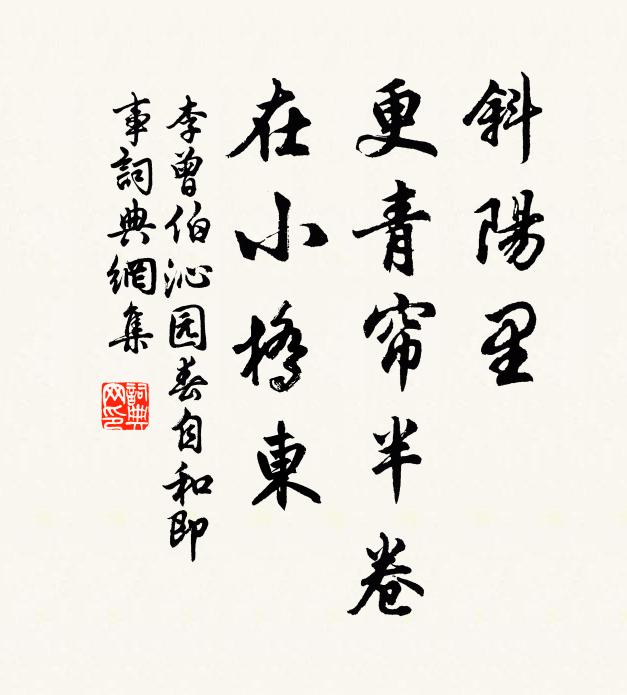 斜陽里
更青帘半卷
在小橋東
李曾伯沁园春自和即
事詞典網集
詞典
网印